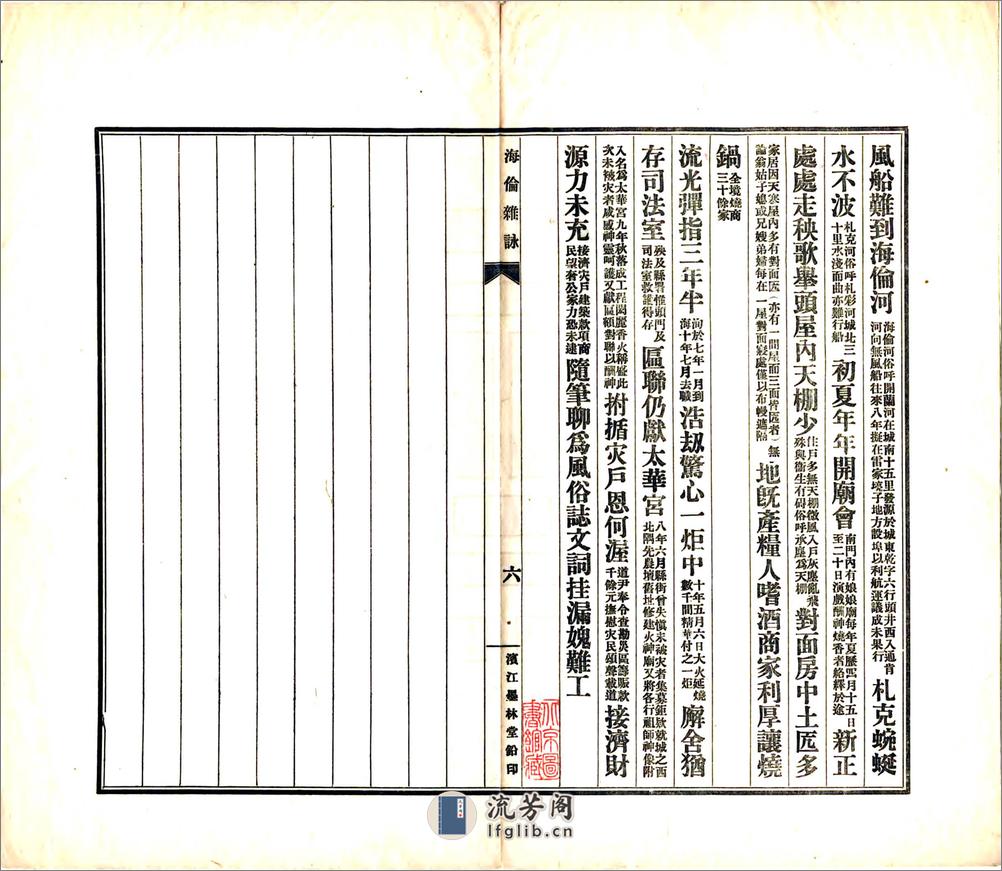 風船難到海倫河海倫河俗呼開蘭河在城南十五里發源於城東乾字六行頭井西入通肯河向無風船往來八年擬在雷家壕子地方設埠以利航運議成未果行札克蜿蜒
水不波札克河俗呼札彩河城北三十里水淺面曲亦難行船初夏年年開廟會南門內有娘娘廟每年夏歷四月十五日至二十日演戲酬神燒香者絡繹於途新正
處處走秧歌舉頭屋內天棚少住戶多無天棚微風入戶灰塵亂飛殊與衞生有碍俗呼承塵爲天棚對面房中土匟多
家居因天寒屋內多有對面匟(亦有一間屋而三面皆匟者)無論翁姑子媳或兄嫂弟婦每在一屋對面寢處僅以布幔遮隔地旣產糧人嗜酒商家利厚讓燒
鍋全境燒商三十餘家
流光彈指三年半洵於七年一月到海十年七月去職浩刼驚心一炬中十年五月六日大火延燒數千間精華付之一炬廨舍猶
存司法室殃及縣署惟頭門及司法室救護得存區聯仍獻太華宮八年六月縣街曾失愼未被灾者集募鉅欵就城之西北隅先農壇舊址修建火神廟又將各行祖師神像附
入名爲太華宮九年秋落成工程閎麗香火稱盛此次未被灾者咸感神靈呵護又獻區額對聯以酬神拊循灾戶恩何渥道尹奉令查勘災區籌賑款千餘元撫慰灾民頌聲載道接濟財
源力未充接濟灾戶建築款項商民望者公家力恐未逮隨筆聊爲風俗誌文詞挂漏媿難工
海倫雜詠
六
濱江墨林堂鉛印
北京圖書館藏
流芳阁
lfglib.cn